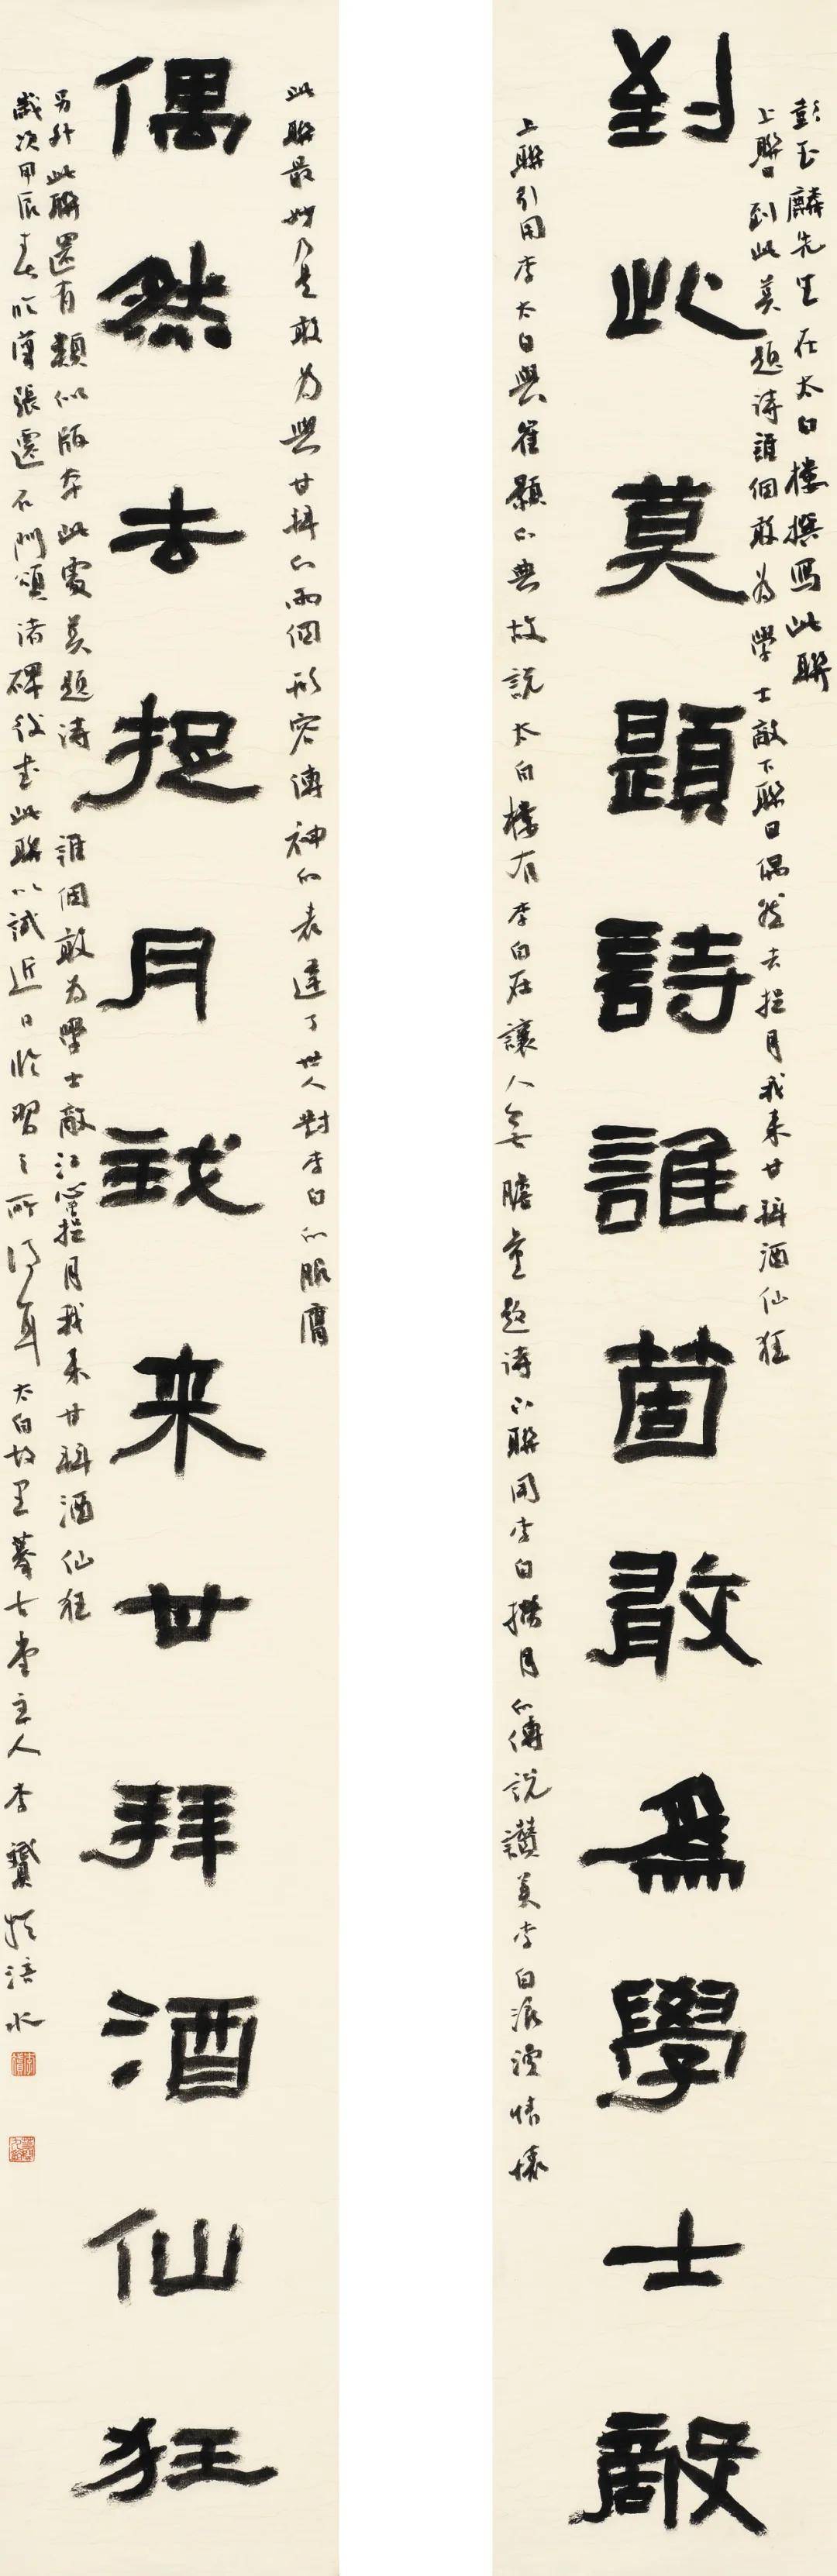 彭玉麟先生在太白樓撰寫此聯
上聯曰到此莫題詩誰個敢為學士敵下聯曰偶然去捉月我來甘拜酒仙狂
到此莫題詩誰箇敢為學士敵
上聯引用李太白與崔顥的典故說太白樓有李白在讓人無膽量題詩下聯用李白撈月的傳說讚美李白浪漫情懷
此聯最妙乃是敢為與甘拜的兩個形容傳神的表達了世人對李白的服膺
偶然去捉月我来甘拜酒仙狂
另外此聯還有類似版本此處莫題詩誰個敢為學士敵江心捉月我來甘拜酒仙狂
歲次甲辰春臨習張遷石門頌諸碑後書此聯以試近日臨習之所得耳太白故里摹古堂主人李贇於涪水